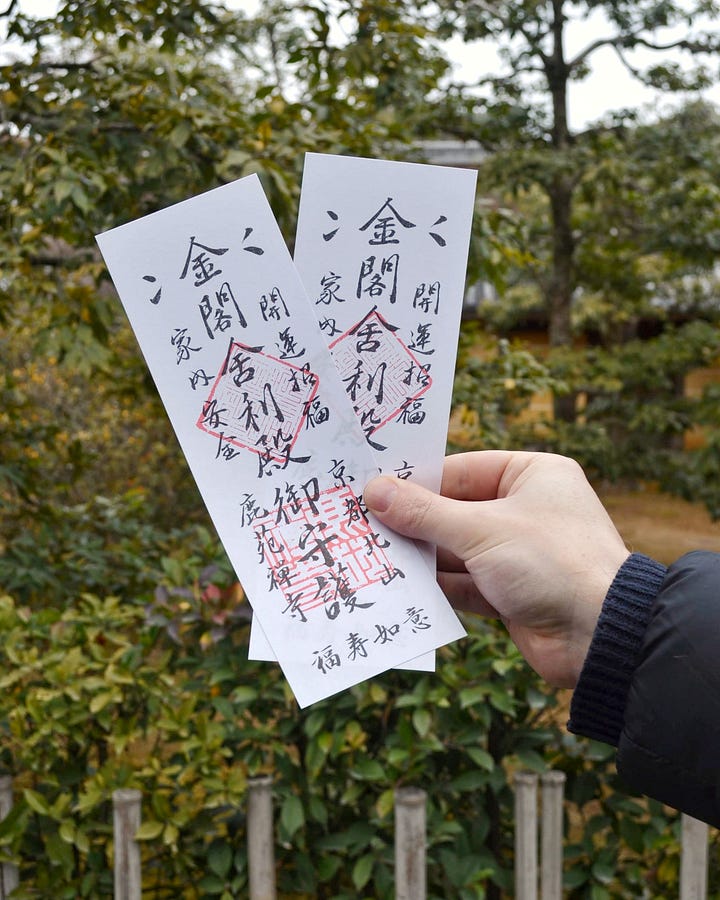 開運招福
金閣舎利殿御守護
家内安全
京都北山
鹿苑禅寺
福寿如意
開運招福
金閣舎利殿
家内
京